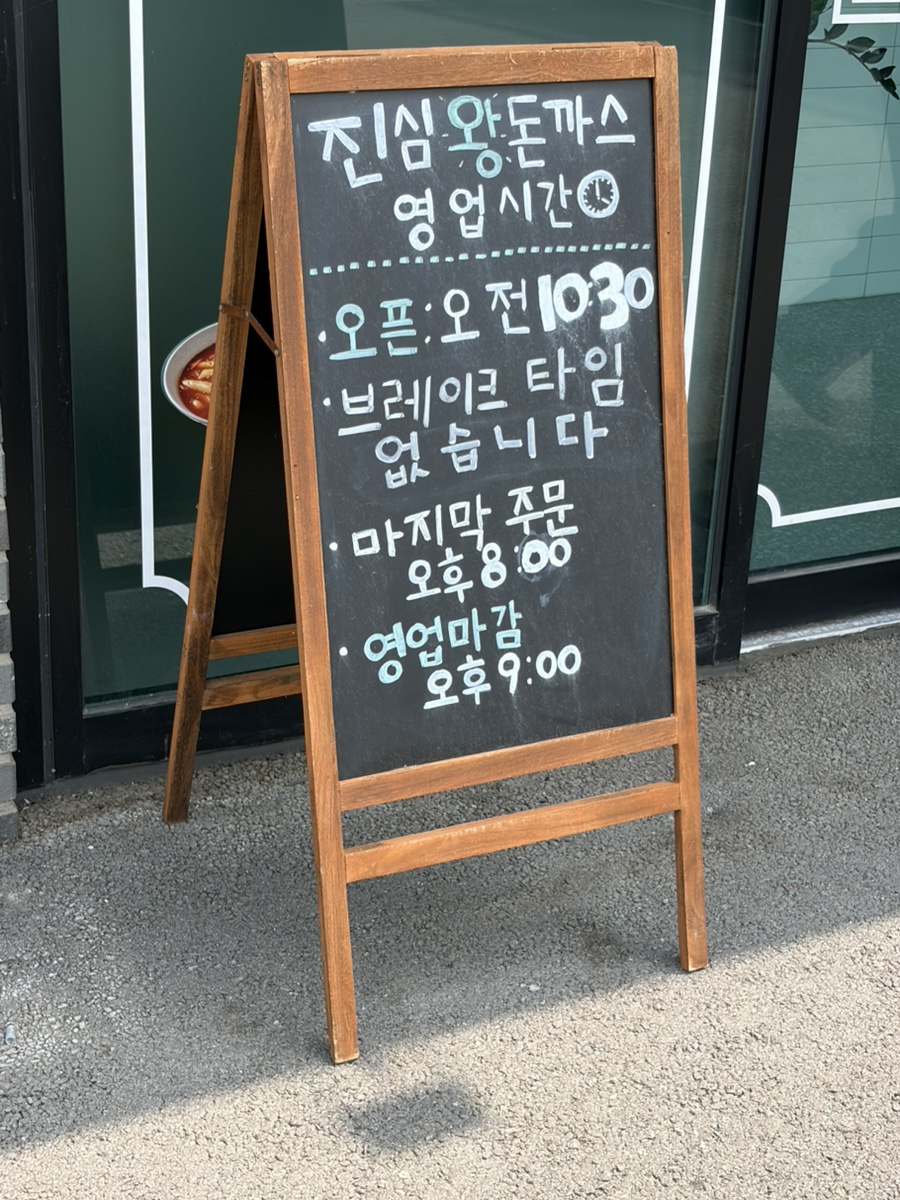 진심왕돈까스
영업시간
·오픈:오전10:30
·브레이크타임
없습니다
·마지막 주문
오후8:00
·영업마감
오후9:00